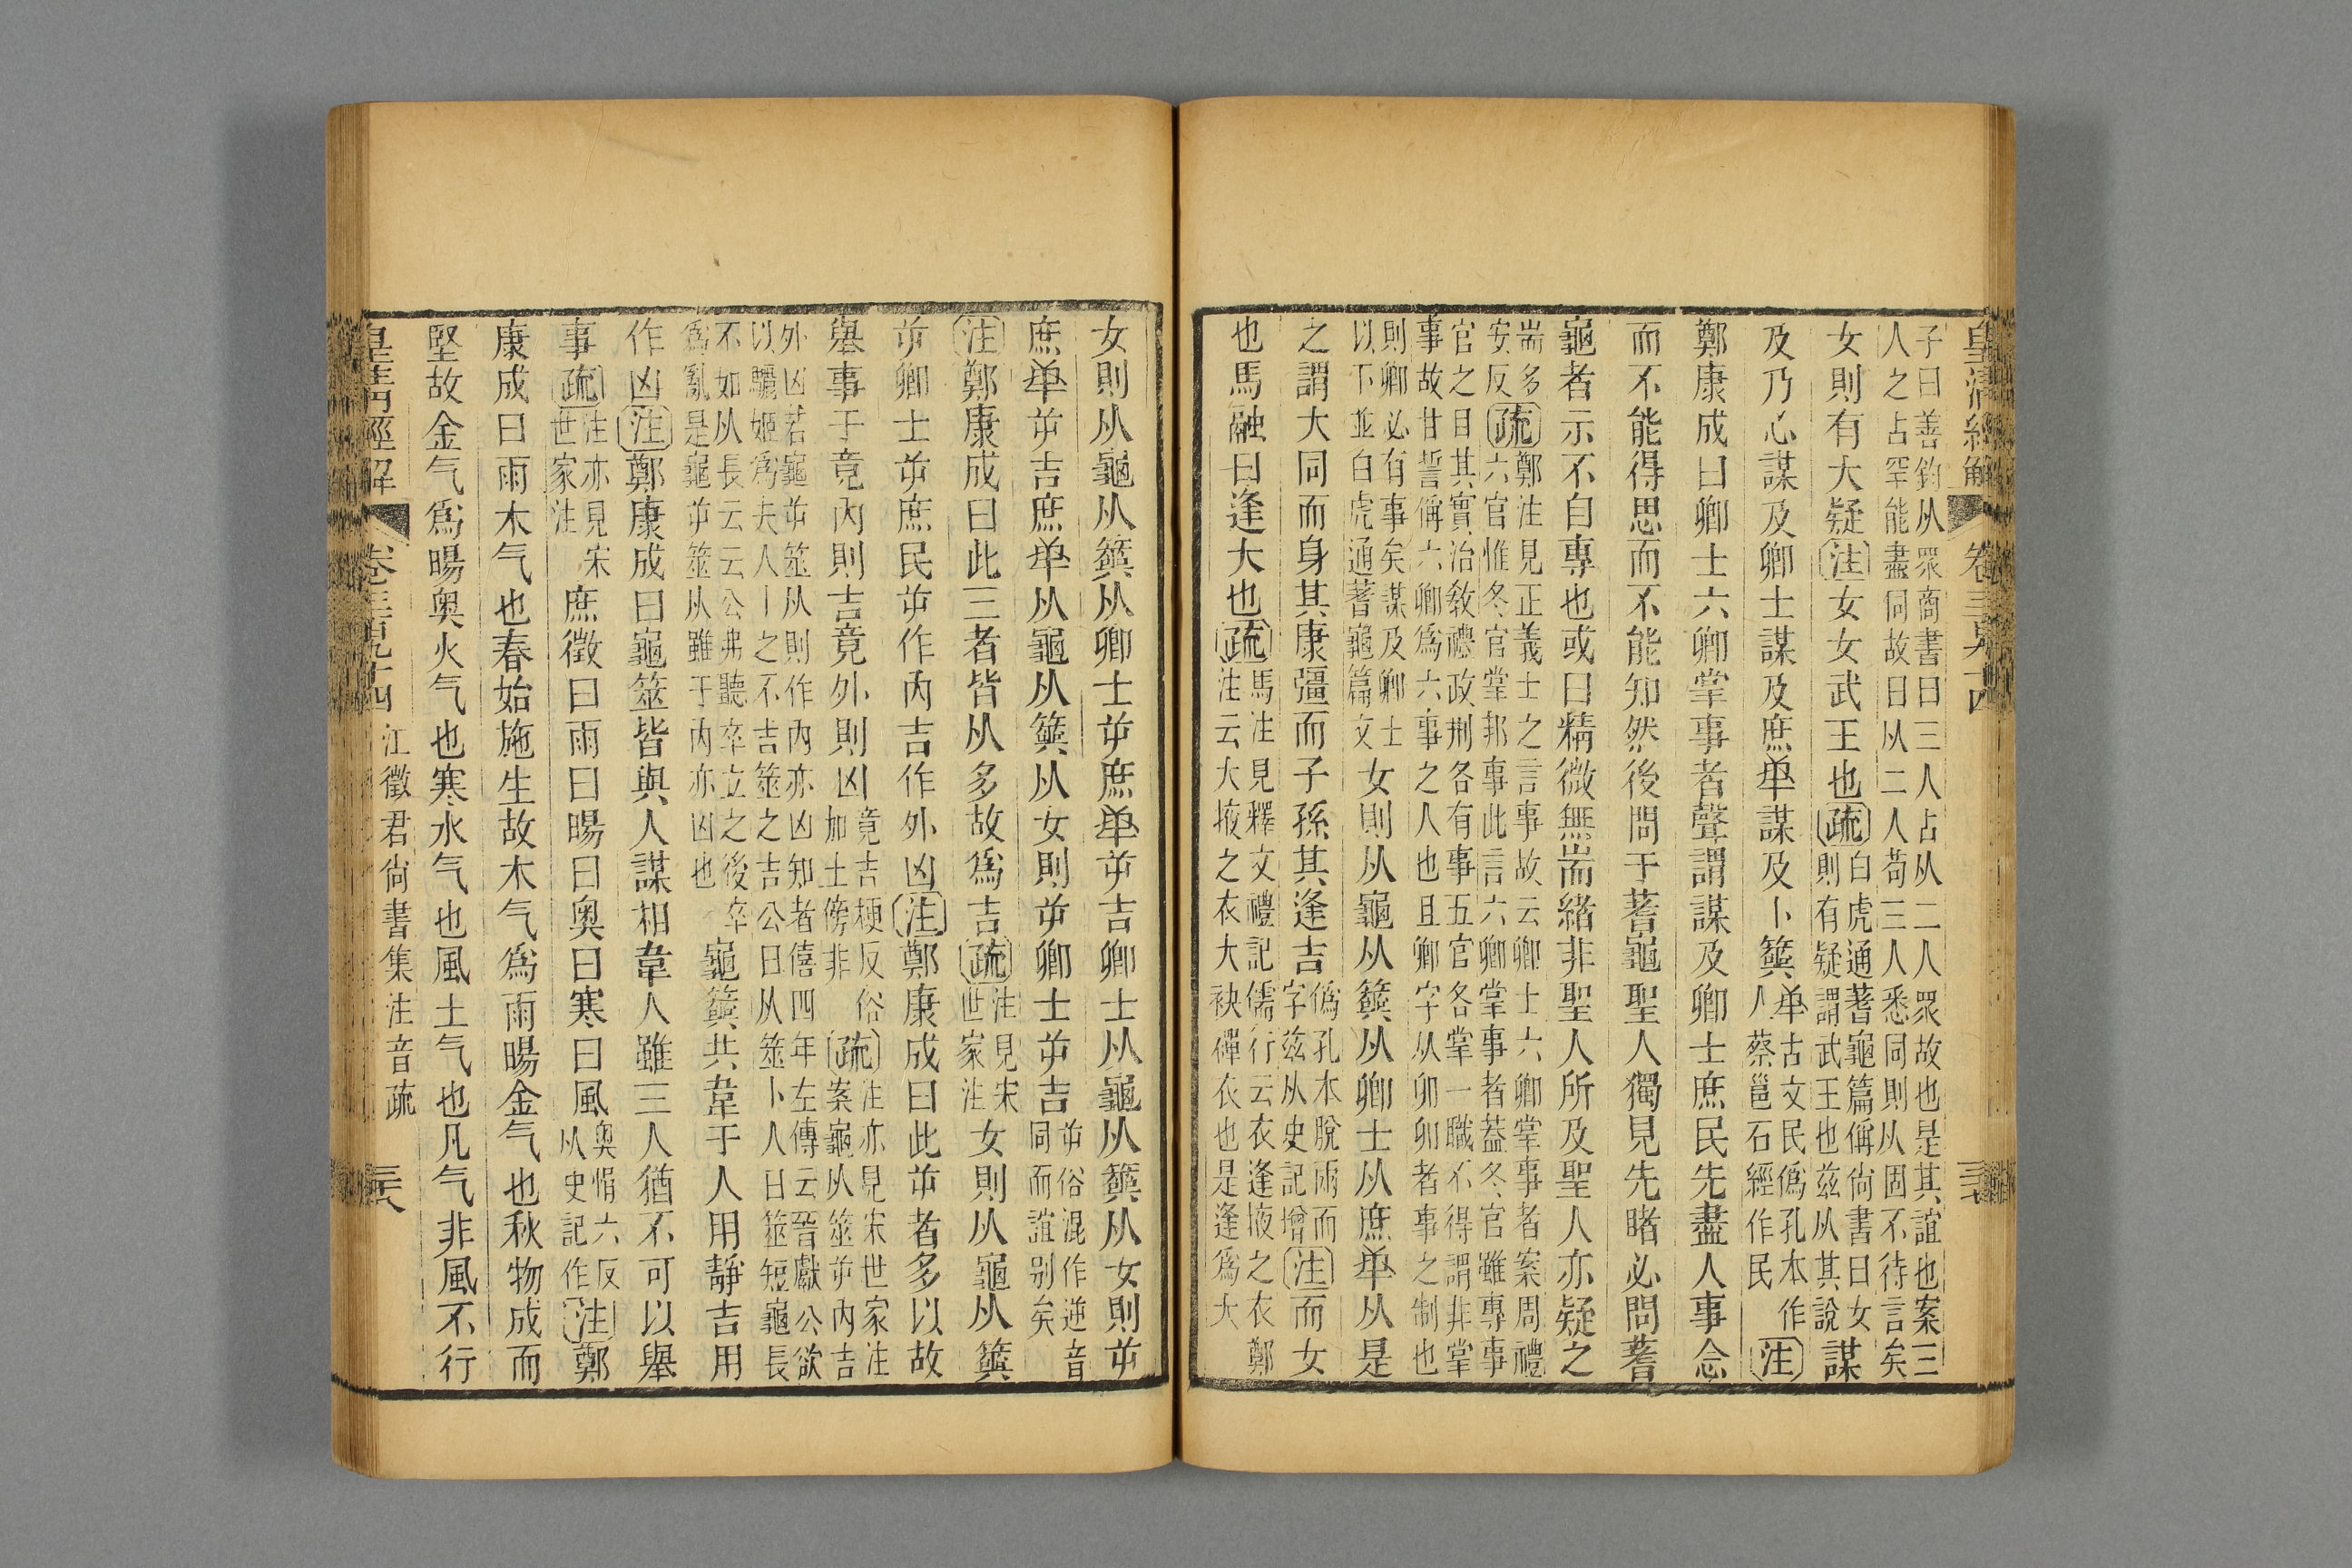 皇清經解 卷三百九十四 三七
子曰善鈞从眾商書曰三人占从二人眾故也是其誼也案三
人之占罕能盡同故曰从二人苟三人悉同則从固不待言矣
女則有大疑注女女武王也疏白虎通蓍龜篇偁尙書曰女
則有疑謂武王也兹从其說謀
及乃心謀及卿士謀及庶𠦮謀及卜筮𠦮古文民偽孔本作
人蔡邕石經作民注
鄭康成曰卿士六卿掌事者聲謂謀及卿士庶民先盡人事念
而不能得思而不能知然後問于蓍龜聖人獨見先睹必問蓍
龜者示不自專也或曰精微無耑緒非聖人所及聖人亦疑之
耑多
安反疏鄭注見正義士之言事故云卿士六卿掌事者案周禮
六官惟冬官掌邦事此言六卿掌事者葢冬官雖專事
官之目其實治敎禮政刑各有事五官各掌一職不得謂非掌
事故甘誓偁六卿爲六事之人也且卿字从卯卯者事之制也
則卿必有事矣謀及卿士
以下並白虎通蓍龜篇文女則从龜从筮从卿士从庶𠦮从是
之謂大同而身其康彊而子孫其逢吉偽孔本脫兩而
字兹从史記增注而女
也馬融曰逢大也疏馬注見釋文禮記儒行云衣逢掖之衣鄭
注云大掖之衣大袂襌衣也是逢爲大
女則从龜从筮从卿士屰庶𠦮屰吉卿士从龜从筮从女則屰
庶𠦮屰吉庶𠦮从龜从筮从女則屰卿士屰吉屰俗混作逆音
同而誼别矣
注鄭康成曰此三者皆从多故爲吉疏注見宋
世家注女則从龜从筮
屰卿士屰庶民屰作內吉作外凶注鄭康成曰此屰者多以故
舉事于竟內則吉竟外則凶竟吉梗反俗
加土傍非疏注亦見宋世家注
案龜从筮屰內吉
外凶若龜屰筮从則作內亦凶知者僖四年左傳云晉獻公欲
以驪姬爲夫人卜之不吉筮之吉公曰从筮卜人曰筮短龜長
不如从長云云公弗聽卒立之後卒
爲亂是龜屰筮从雖于內亦凶也龜筮共韋于人用靜吉用
作凶注鄭康成曰龜筮皆與人謀相韋人雖三人猶不可以舉
事疏注亦見宋
世家注庶徵曰雨曰暘曰奥曰寒曰風奥惟六反
从史記作注鄭
康成曰雨木气也春始施生故木气爲雨暘金气也秋物成而
堅故金气爲暘奥火气也寒水气也風土气也凡气非風不行
皇清經解 卷三百九十四 江徵君尙書集注音疏 三八